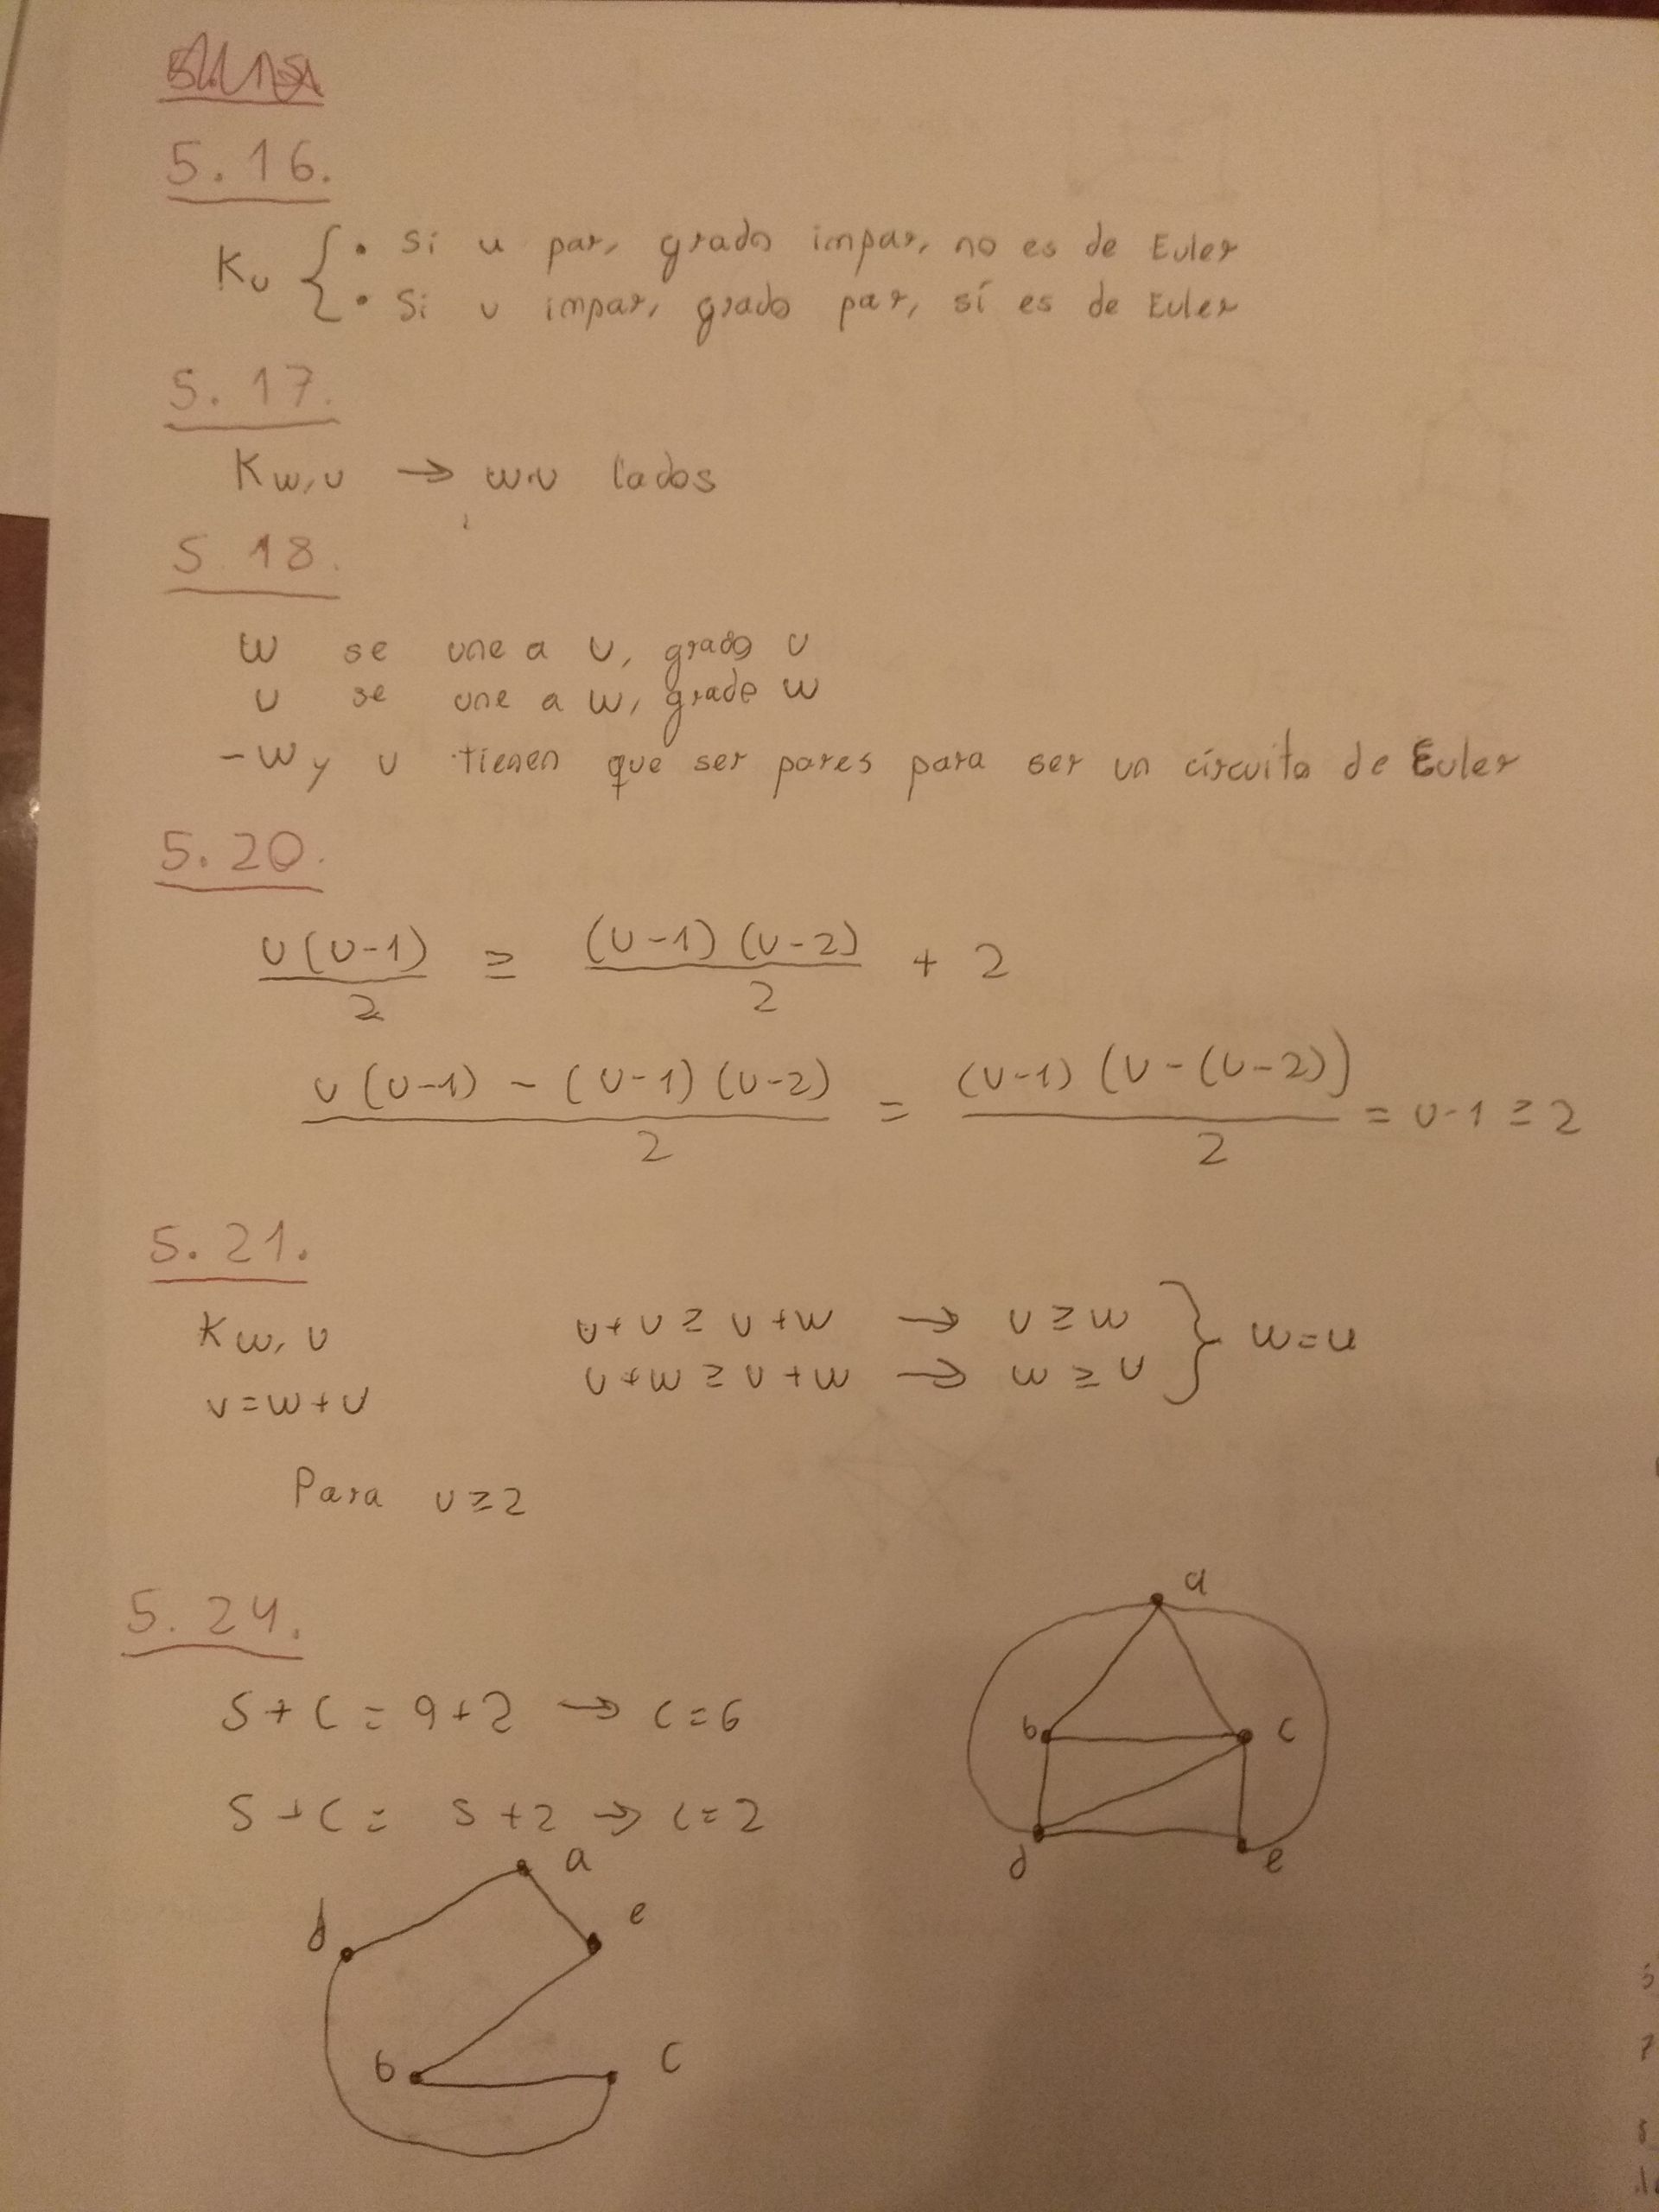 5.16.
Ku { • Si u par, grado impar, no es de Euler
• Si u impar, grado par, sí es de Euler
5.17.
Kw,u → w·u lados
5.18.
w se une a u, grado u
u se une a w, grado w
-w y u tienen que ser pares para ser un circuito de Euler
5.20.
u(u-1)/2 ≥ (u-1)(u-2)/2 + 2
u(u-1) - (u-1)(u-2)/2 = (u-1)(u-(u-2))/2 = u-1 ≥ 2
5.21.
Kw,u u+u ≥ u+w → u ≥ w } w=u
v=w+u u+w ≥ u+w → w ≥ u
Para u≥2
5.24.
5+c=9+2 → c=6
5+c= 5+2 → c=2
a
b c
d e
a
d e
b c